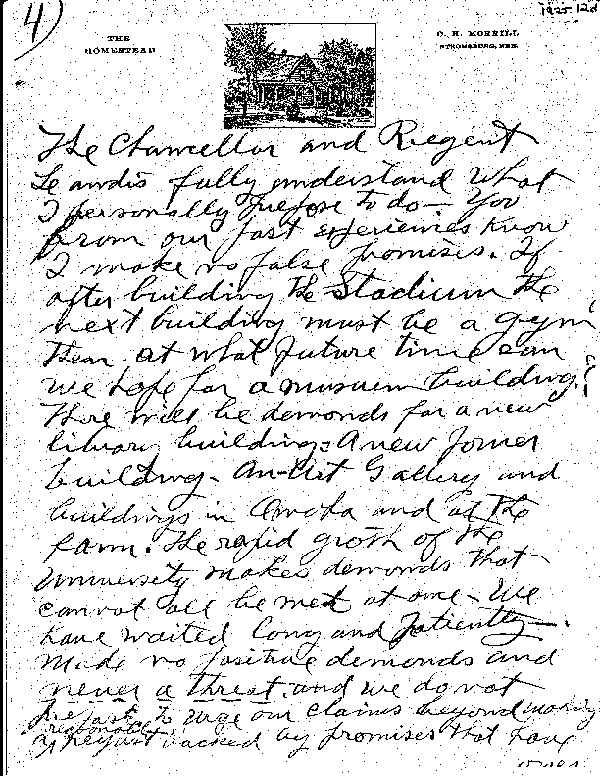 4)
1925 12d
THE
HOMESTEAD
C. H. MORRILL
STROMSBURG, NEB.
The Chancellor and Regent
Leandis fully understand what
I personally propose to do — You
from our past experiences know
I make no false promises. If
after building the Stadium the
next building must be a gym
then at what future time can
we hope for a museum building?
There will be demonds for a new
library building: A new Power
building - An Art Gallery and
buildings in Omaha and at the
Farm. The rapid groth of the
University makes demonds that
cannot all be met at once - We
have waited long and patiently —.
Made no positive demonds and
never a threat. and we do not
propose to urge our claims beyond making
reasonable
request backed by promises that have